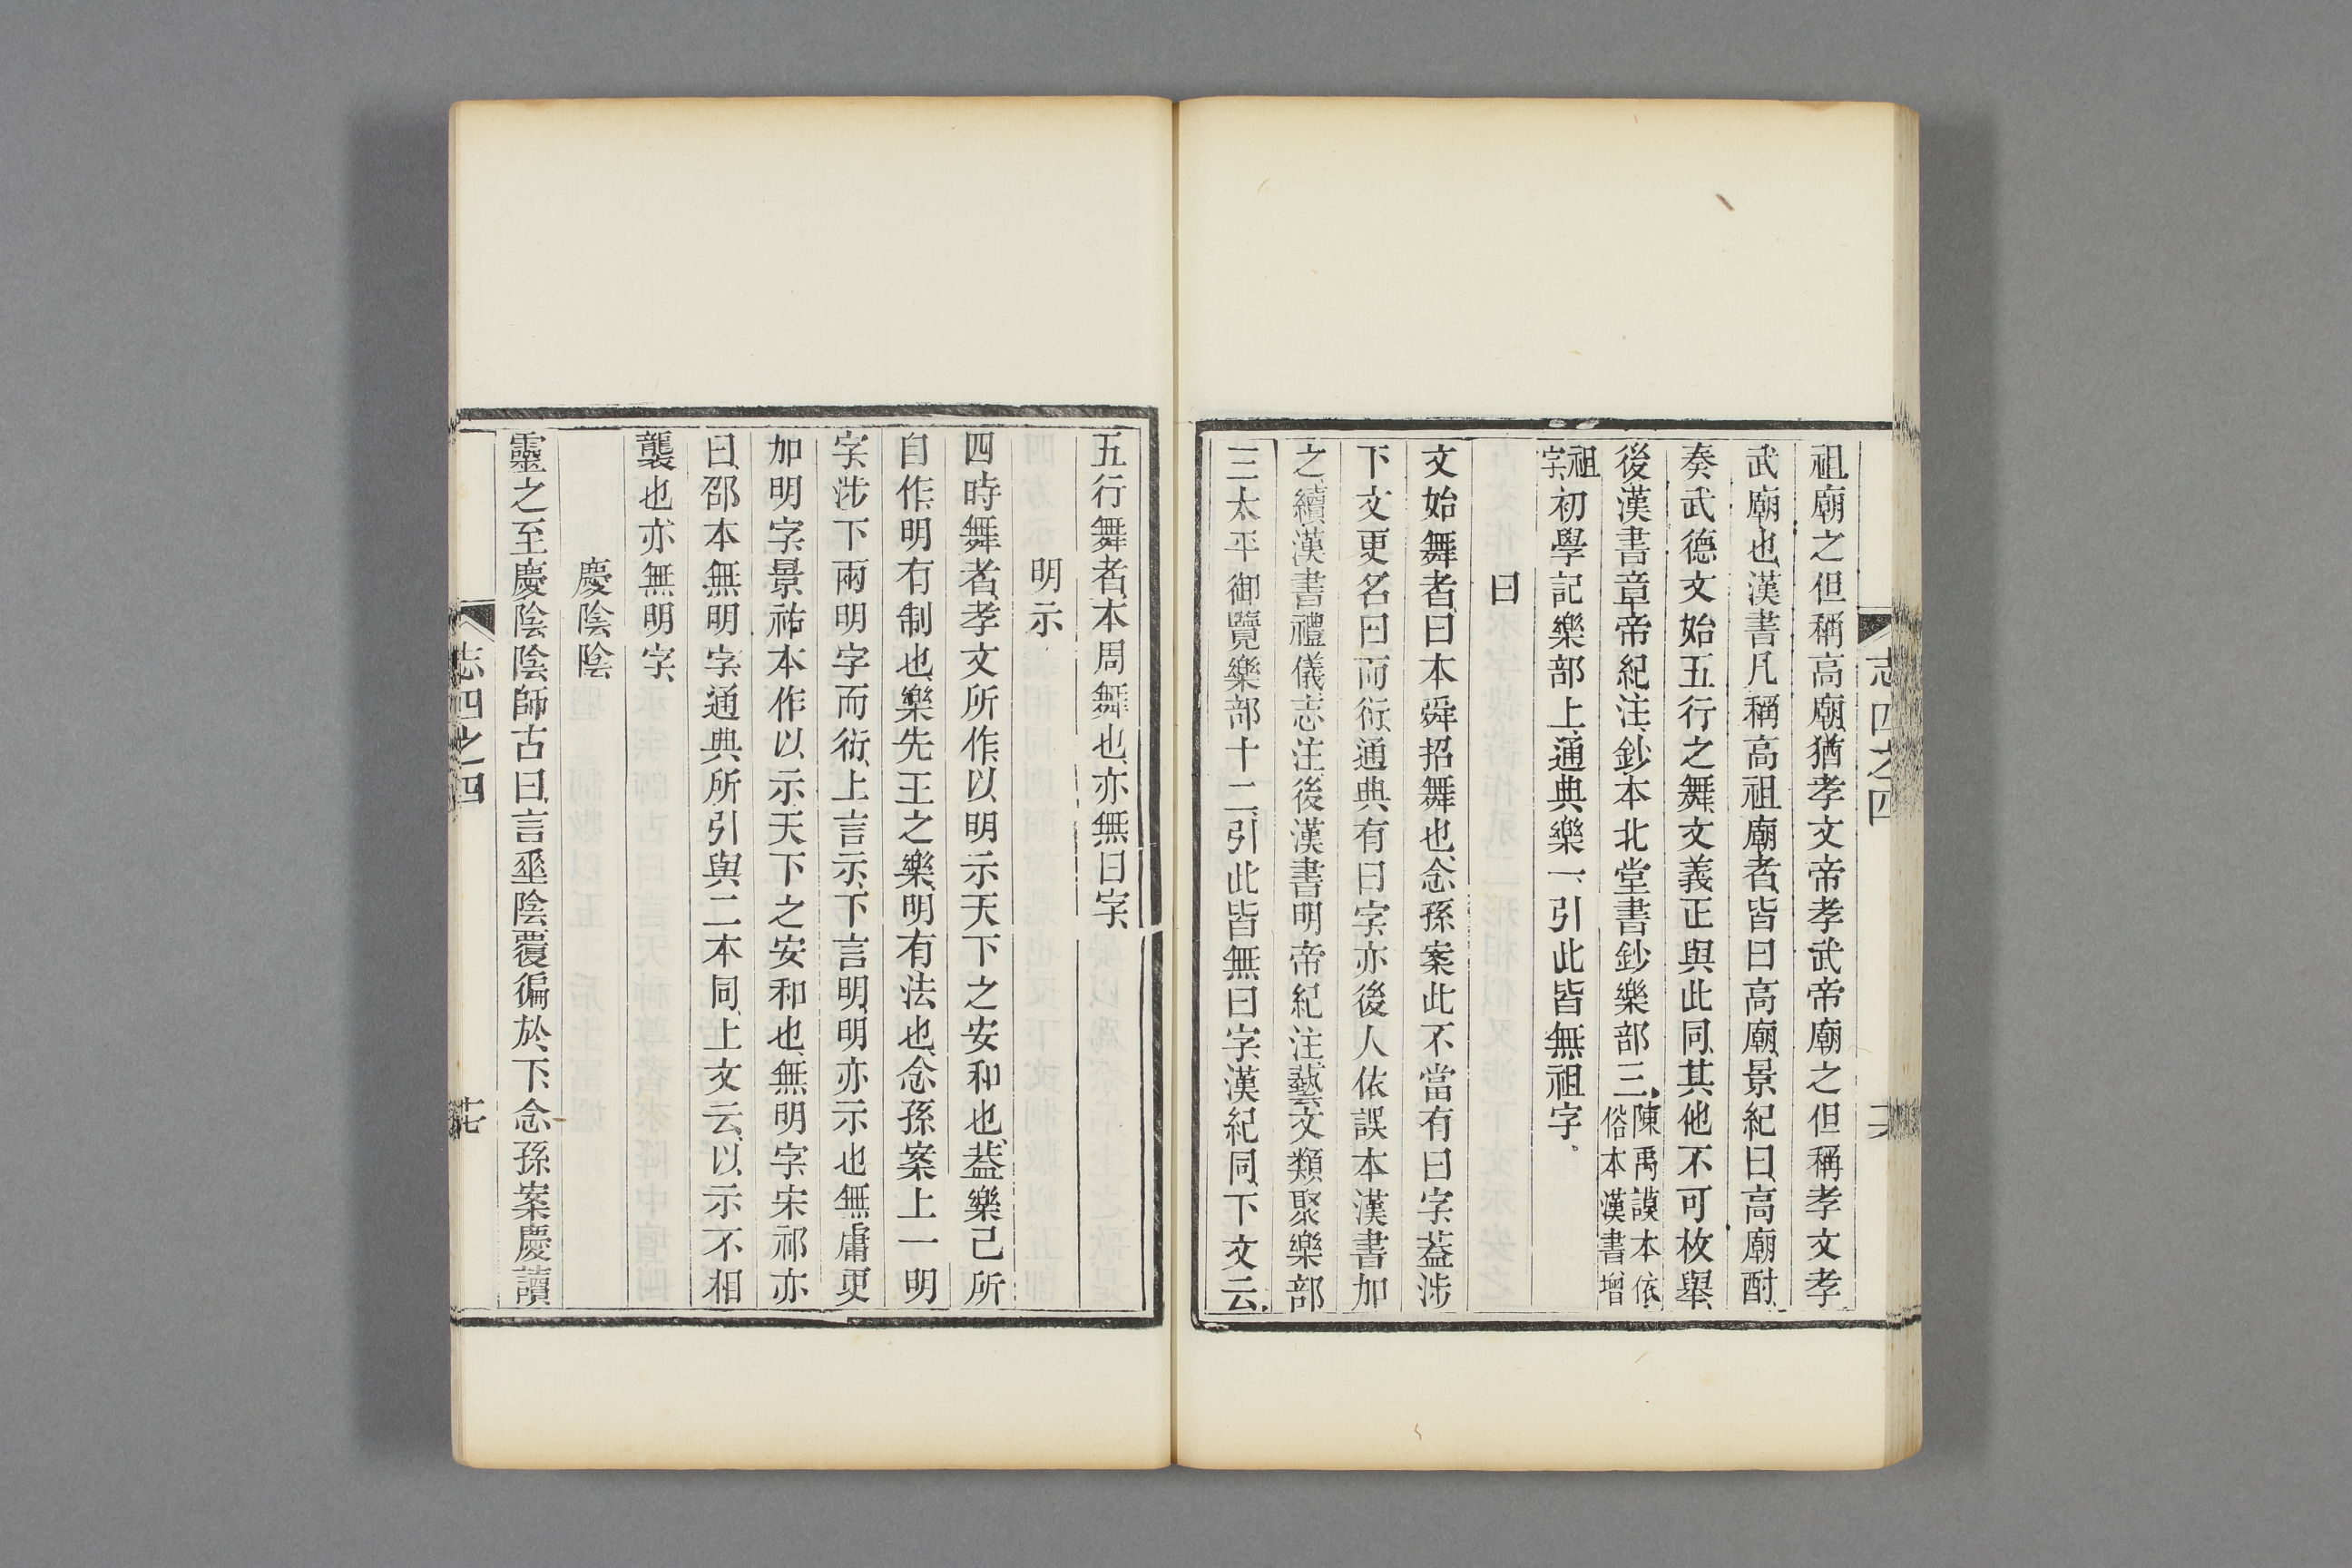 祖廟之但稱高廟猶孝文帝孝武帝廟之但稱孝文孝
武廟也漢書凡稱高祖廟者皆曰高廟景紀曰高廟酎
奏武德文始五行之舞文義正與此同其他不可枚舉
後漢書章帝紀注鈔本北堂書鈔樂部三陳禹謨本依俗本漢書增
祖字初學記樂部上通典樂一引此皆無祖字
曰
文始舞者曰本舜招舞也念孫案此不當有曰字葢涉
下文更名曰而衍通典有曰字亦後人依誤本漢書加
之續漢書禮儀志注後漢書明帝紀注藝文類聚樂部
三太平御覽樂部十二引此皆無曰字漢紀同下文云
五行舞者本周舞也亦無曰字
明示
四時舞者孝文所作以明示天下之安和也葢樂己所
自作明有制也樂先王之樂明有法也念孫案上一明
字涉下兩明字而衍上言示下言明明亦示也無庸更
加明字景祐本作以示天下之安和也無明字宋祁亦
曰邵本無明字通典所引與二本同上文云以示不相
襲也亦無明字
慶陰陰
靈之至慶陰陰師古曰言垂陰覆徧於下念孫案慶讀
志四之四